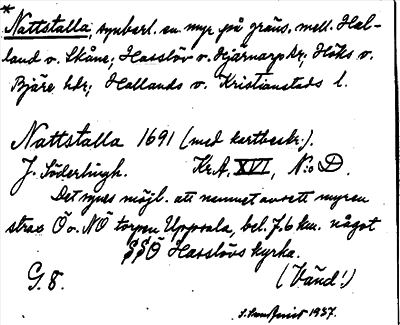 *
Nattstalla; synbarl. en myr på gräns. mell. Hal-
land o. Skåne; Hasslöv o. Hjärnarp sr; Höks o.
Bjäre hdr; Hallands o. Kristianstads l.
Nattstalla 1691 (med kartbeskr.).
J. Söderlingh. Kr.A. XVI, N:o D.
Det synes möjl. att namnet avsett myren
strax Ö o. NÖ torpen Uppsala, bel. 7,6 km. något
SSÖ Hasslövs kyrka.
G. 8. (Vänd!)
1937.